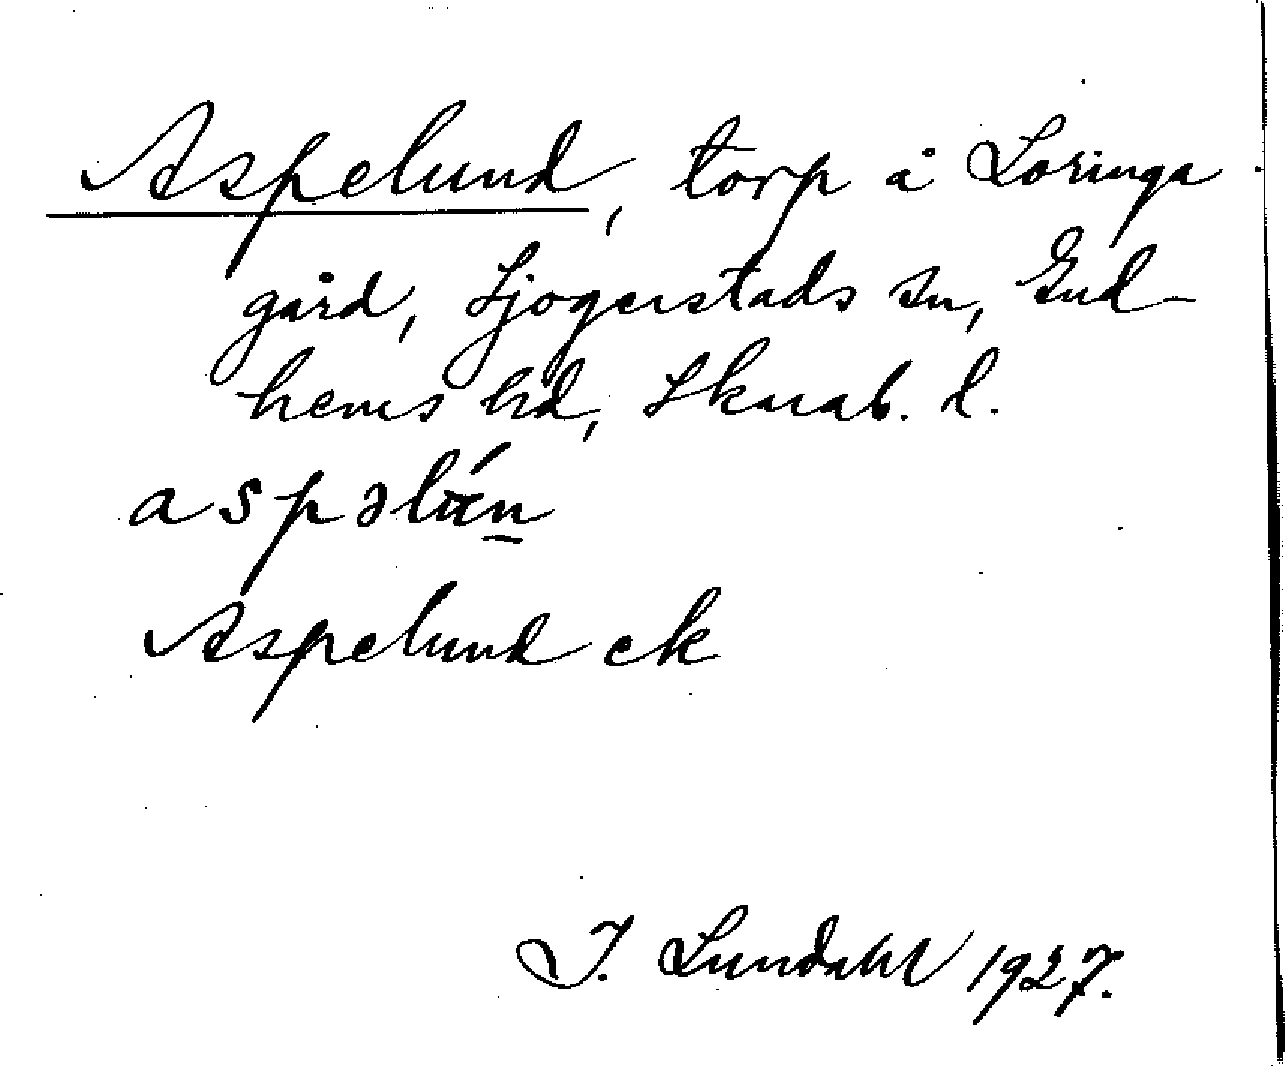 Aspelund, torp å Loringa
gård, Sjogerstads sn, Gud-
hems hd, Skarab. l.
aspəlɯ́n
Aspelund ek
I. Lundahl 1927.